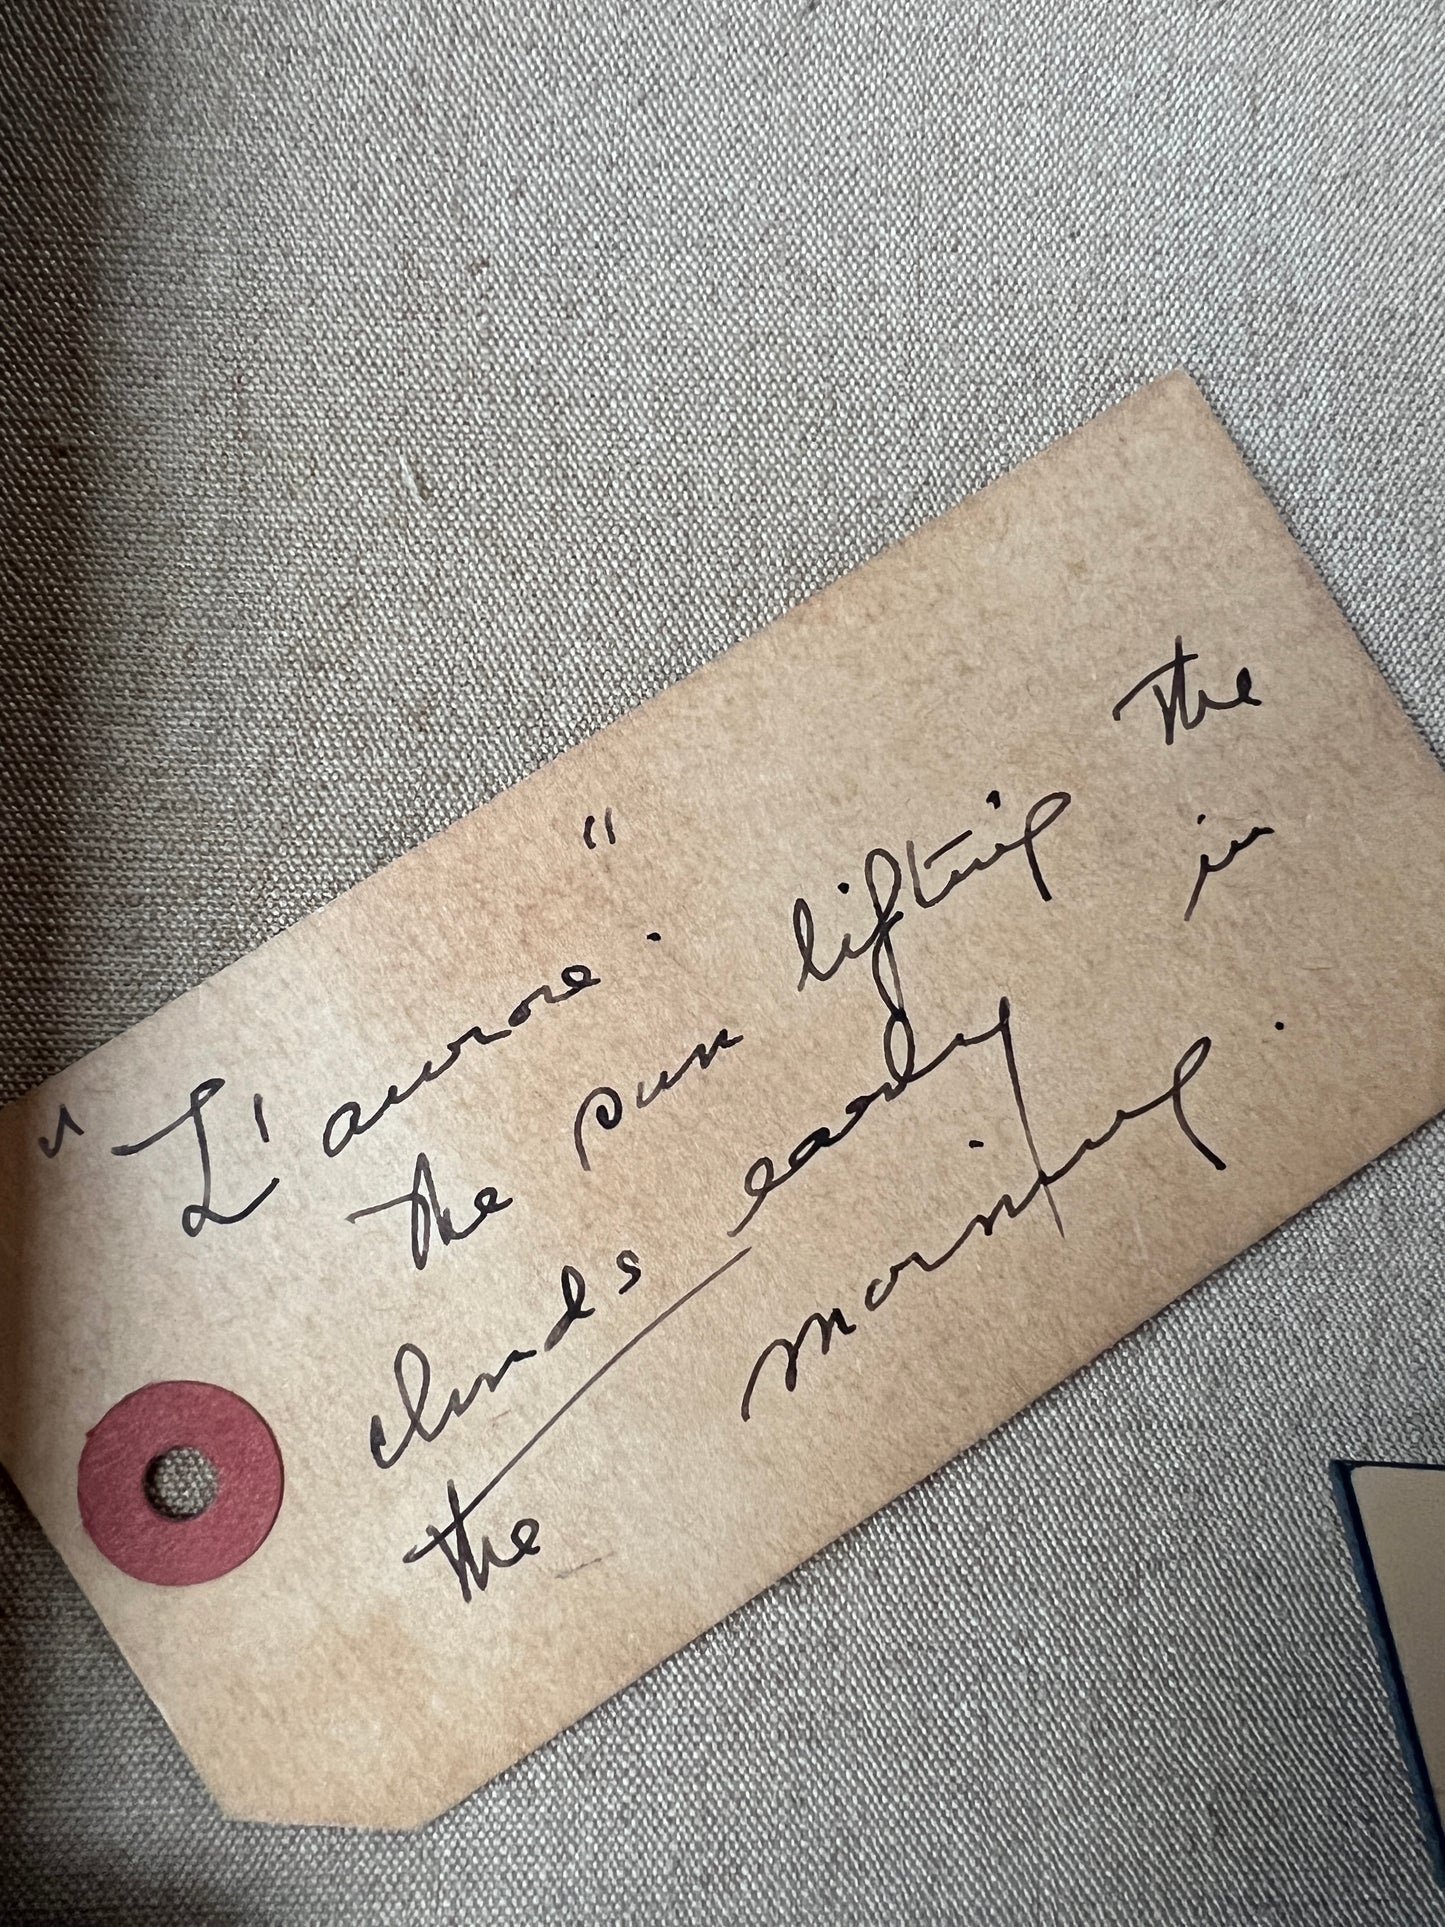 "L'aurore."
the sun lifting the
clouds early in
the morning.